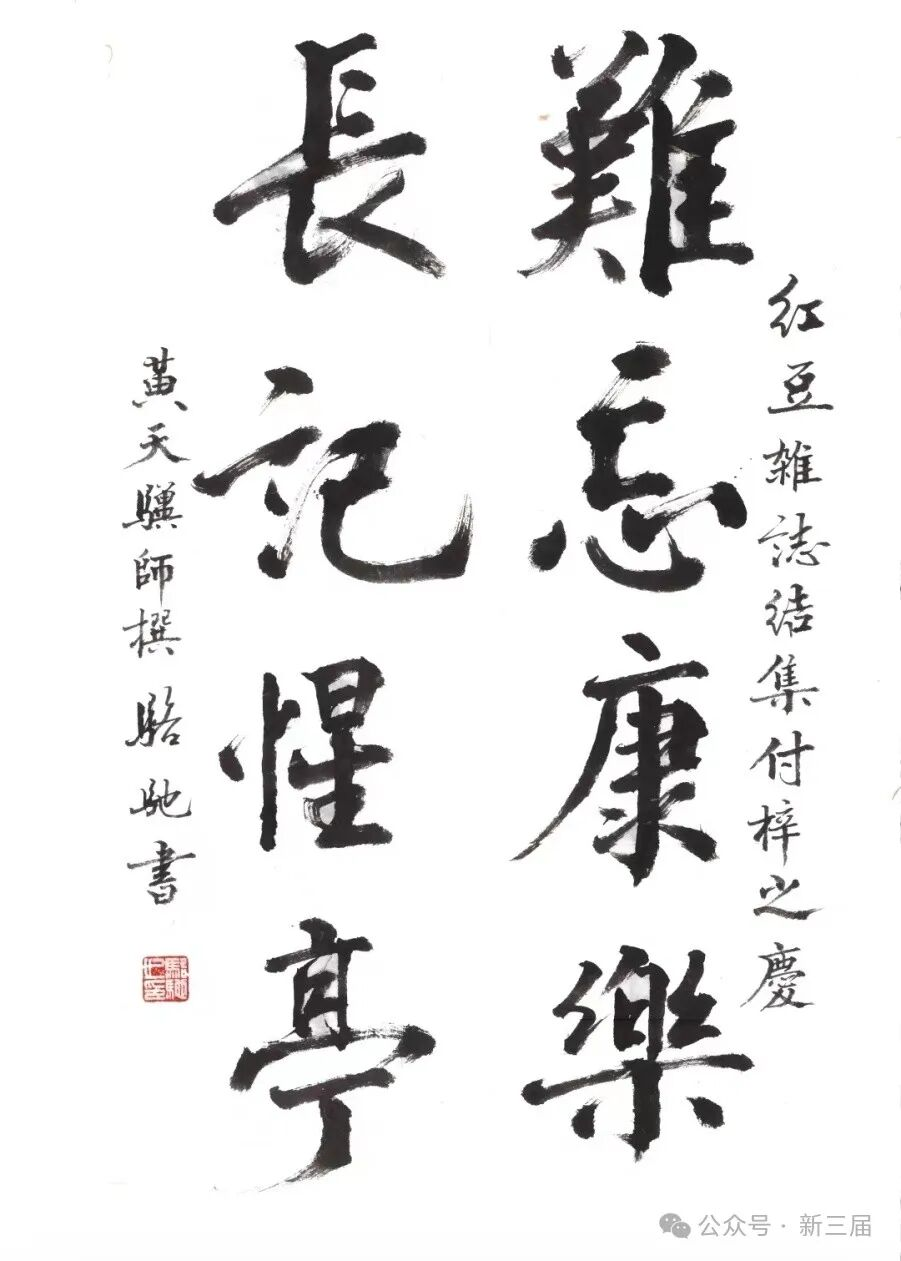 紅豆雜誌結集付梓之慶
難忘康樂
長記惺亭
黄天驥師撰 駱馳書
公众号·新三届